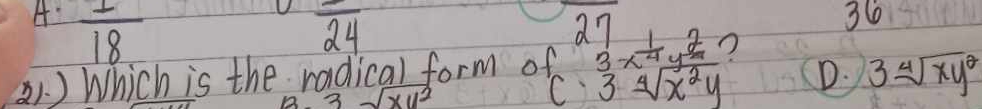 A. 1/18 1/24 27 36
21.) Which is the radical form of 3x^{1/4}y^{2/4}?
B. 3 √xy² C. 3 ∜x²y D. 3 ∜xy²